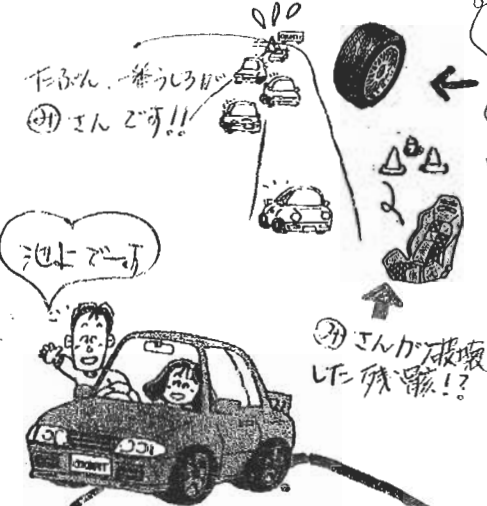 たぶん、一番うしろが
みさんです!!
でーす
みさんが破壊
した残骸!?